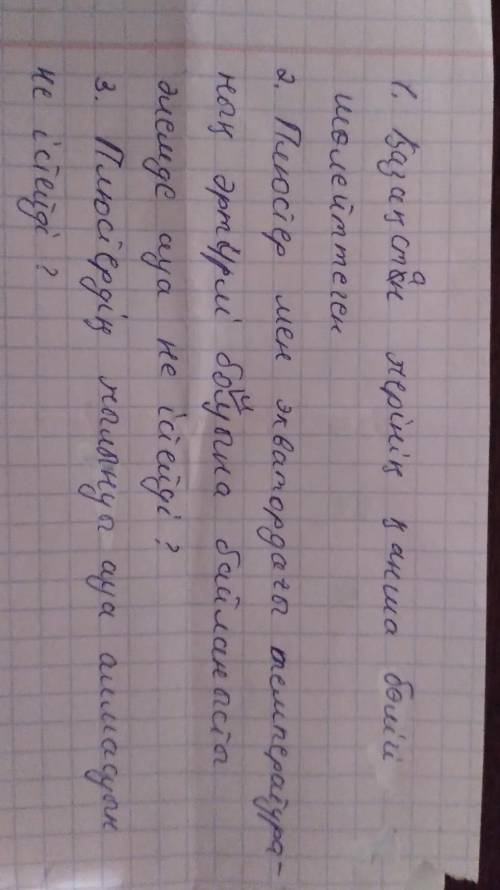 1. Қазақстан жерінің қанша бөлігі
шөлейттеген
2. Плюстер мен экватордағы температура-
ның әртүрлі болуына байланысты
әлемде ауа не істейді?
3. Плюстердің жылынуы ауа алмасуын
не істейді?